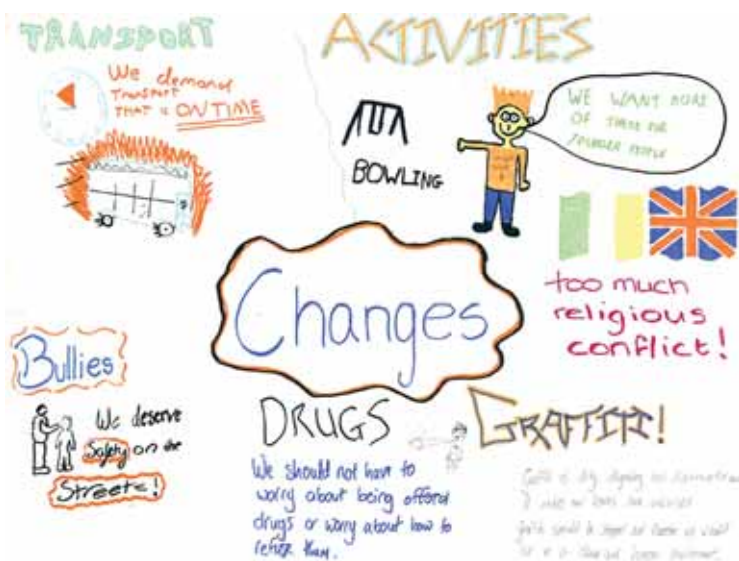 TRANSPORT
We demand
TRANSPORT
THAT is ON TIME
ACTIVITIES
BOWLING
WE WANT MORE
OF THESE FOR
YOUNGER PEOPLE
too much
religious
conflict!
Changes
Bullies
We deserve
Safety on the
Streets!
DRUGS
We should not have to
worry about being offered
drugs or worry about how to
refuse them.
GRAFFITI!